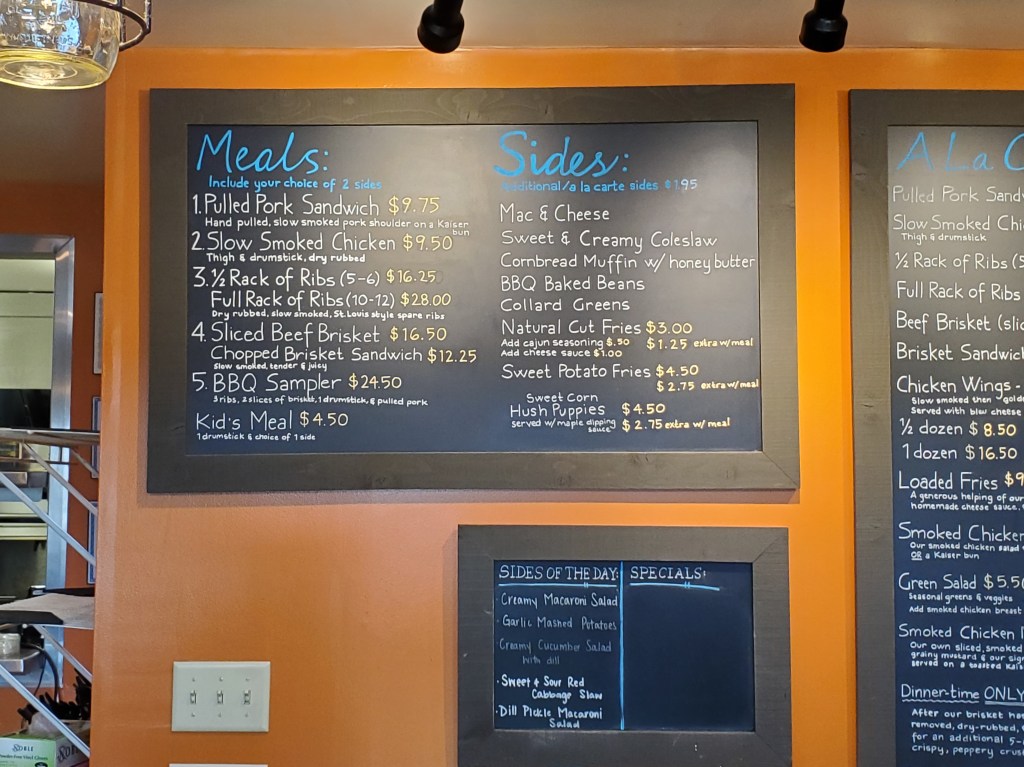 Meals:
Include your choice of 2 sides
1. Pulled Pork Sandwich $9.75
Hand pulled, slow smoked pork shoulder on a Kaiser
bun
2. Slow Smoked Chicken $9.50
Thigh & drumstick, dry rubbed
3. ½ Rack of Ribs (5-6) $16.25
Full Rack of Ribs (10-12) $28.00
Dry rubbed, slow smoked, St. Louis style spare ribs
4. Sliced Beef Brisket $16.50
Chopped Brisket Sandwich $12.25
Slow smoked, tender & juicy
5. BBQ Sampler $24.50
3 ribs, 2 slices of brisket, 1 drumstick, & pulled pork
Kid's Meal $4.50
1 drumstick & choice of 1 side
Sides:
Additional/a la carte sides $1.95
Mac & Cheese
Sweet & Creamy Coleslaw
Cornbread Muffin w/ honey butter
BBQ Baked Beans
Collard Greens
Natural Cut Fries $3.00
Add cajun seasoning $.50 $1.25 extra w/meal
Add cheese sauce $1.00
Sweet Potato Fries $4.50
$2.75 extra w/meal
Sweet Corn
Hush Puppies $4.50
served w/ maple dipping
sauce $2.75 extra w/ meal
SIDES OF THE DAY:
· Creamy Macaroni Salad
· Garlic Mashed Potatoes
Creamy Cucumber Salad
with dill
· Sweet & Sour Red
Cabbage Slaw
· Dill Pickle Macaroni
Salad
SPECIALS:
A La
Pulled Pork
Slow Smoked
Thigh & drumstick
½ Rack of Ribs
Full Rack of Ribs
Beef Brisket
Brisket
Chicken Wings -
Slow smoked then
Served with blew cheese
½ dozen $8.50
1 dozen $16.50
Loaded Fries
A generous helping of
homemade cheese sauce,
Smoked
Our smoked chicken salad
OR a Kaiser bun
Green Salad $5.50
Seasonal greens & veggies
Add smoked chicken breast
Smoked Chicken
Our own sliced, smoked
grainy mustard & our
served on a toasted
Dinner-time ONLY
After our brisket
removed, dry-rubbed,
for an additional
crispy, peppery
NOBLE